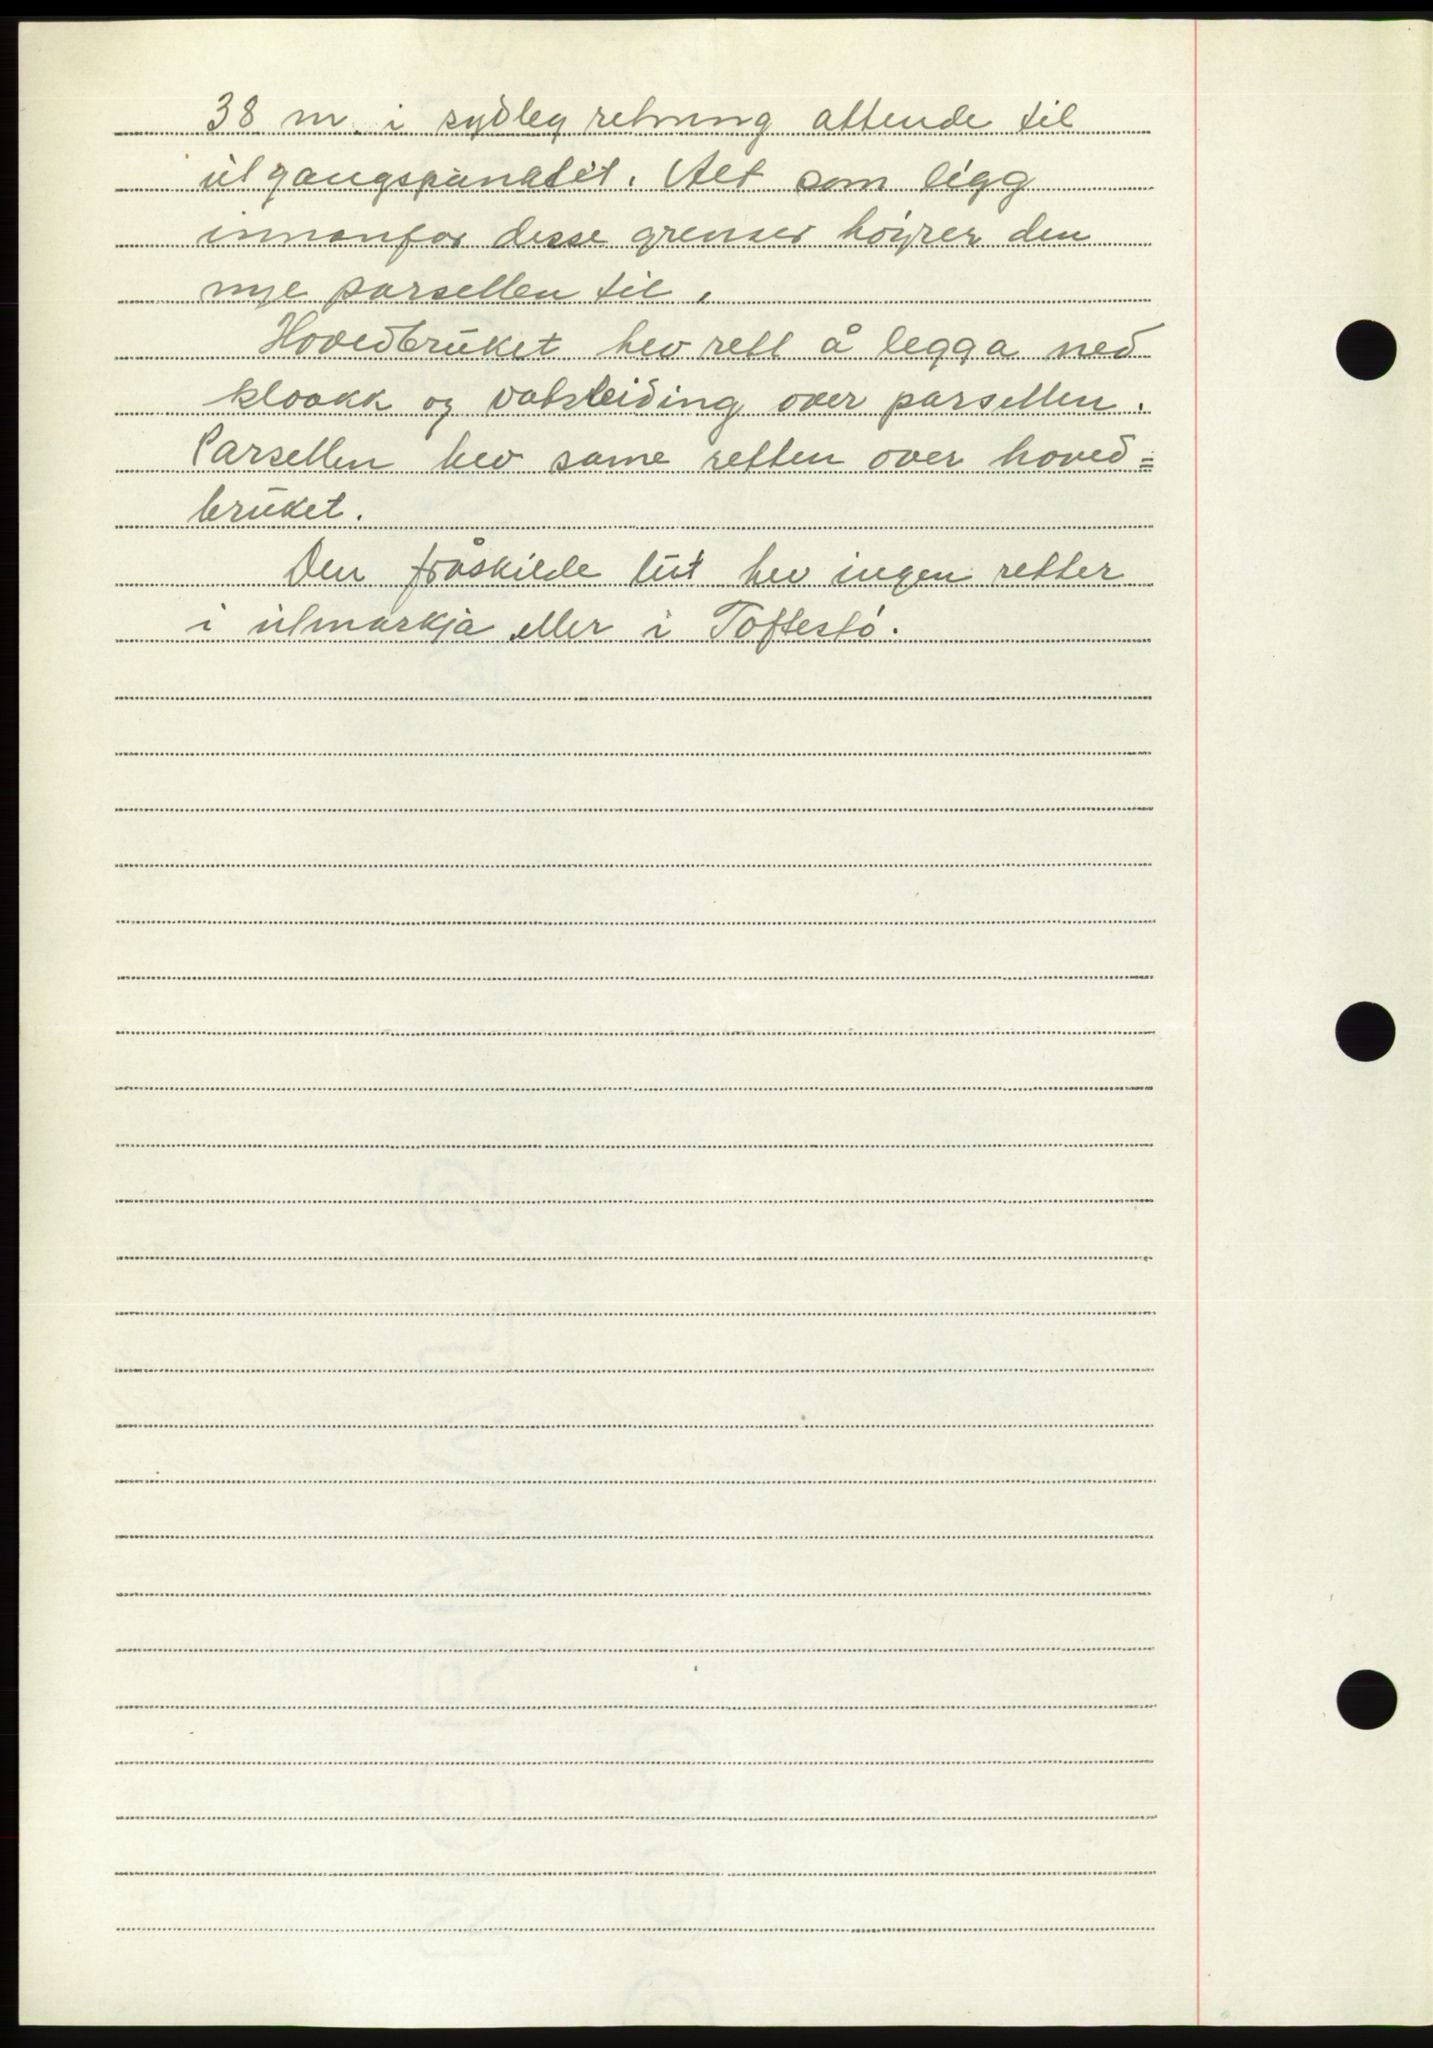 38 m. i sydleg retning attende til
utgangspunktet. Alt som ligg
innanfor desse grenser höyrer den
nye parsellen til.
Hovedbruket hev rett å legga ned
kloakk og vatsleiding over parsellen.
Parsellen hev same retten over hoved=
bruket.
Den fråskilde lut hev ingen retter
i utmarkja eller i Toftestö.